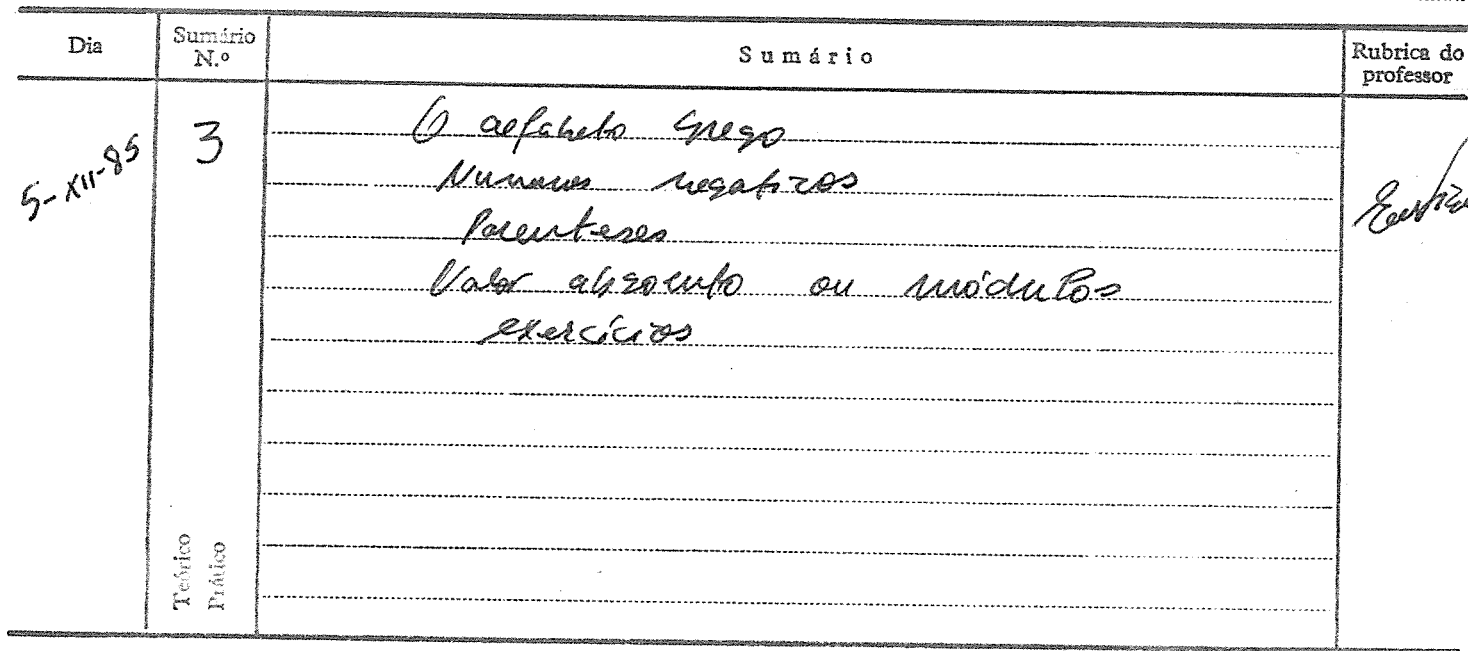 Dia Sumário N.º Sumário Rubrica do professor
5-XII-85 3 O alfabeto Grego
Numeros negativos
Parenteses
Valor absoluto ou módulos
exercícios
Teórico
Prático